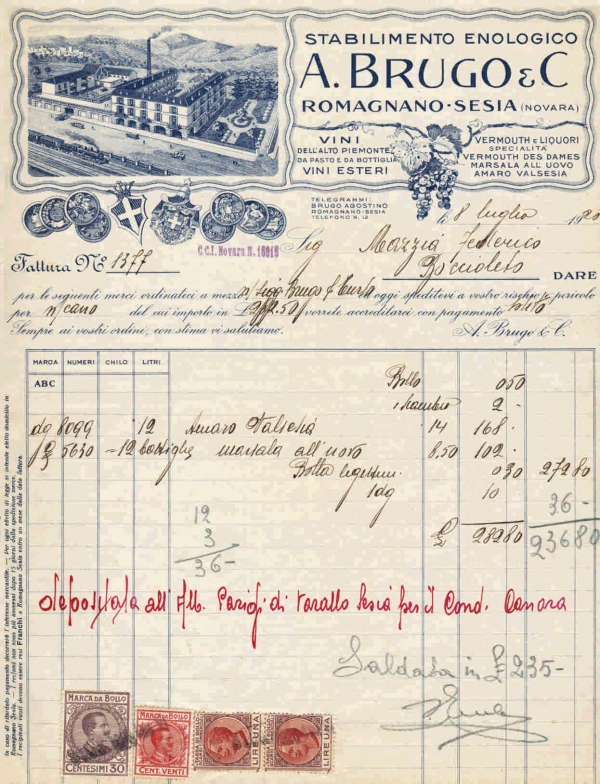 STABILIMENTO ENOLOGICO
A. BRUGO & C
ROMAGNANO-SESIA (NOVARA)
VINI
DELL'ALTO PIEMONTE
DA PASTO E DA BOTTIGLIA
VINI ESTERI
VERMOUTH E LIQUORI
SPECIALITÀ
VERMOUTH DES DAMES
MARSALA ALL'UOVO
AMARO VALSESIA
TELEGRAMMI:
BRUGO AGOSTINO
ROMAGNANO-SESIA
TELEFONO N. 12
8 luglio 19
C.C.I. Novara N. 16018
Sig Mazzia Federico
Fattura N° 1377
DARE
per le seguenti merci ordinateci a mezzo oggi speditevi a vostro rischio e pericolo
per del cui importo in vorrete accreditarci con pagamento
Sempre ai vostri ordine, con stima vi salutiamo. A. Brugo & C.
MARCA NUMERI CHILO LITRI
ABC Bollo 050
2 -
dg 8099 12 Amaro Valsesia 14 168 -
5630 = 12 bottiglie marsala all'uovo 8.50 102 -
030 27280
10 36-
£ 28280 23680
12
3
36-
depositata all'Alb. Parigi di Varallo Sesia per il Cond. Cassara
Saldata in £ 235-
In caso di ritardato pagamento decorrerà l'interesse mercantile. — Per ogni effetto di legge si intende eletto domicilio in
Romagnano Sesia. — I reclami non sono più ammessi dopo 15 giorni dalla spedizione merce.
I recipienti vuoti devono essere resi Franchi a Romagnano Sesia entro un mese dalla data fattura.
MARCA DA BOLLO
CENTESIMI 30
MARCA DA BOLLO
CENT. VENTI
LIRE UNA
LIRE UNA